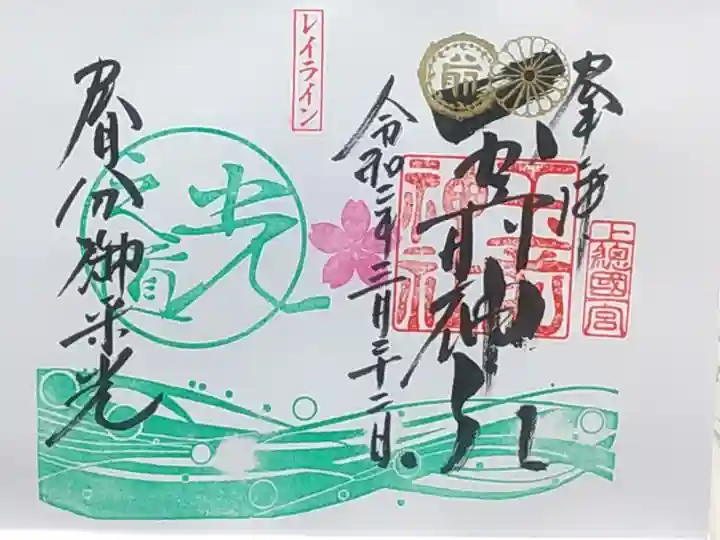 奉拝
上總國一宮
玉前神社
玉前神社
令和二年三月二十二日
レイライン
光之道
春分御来光